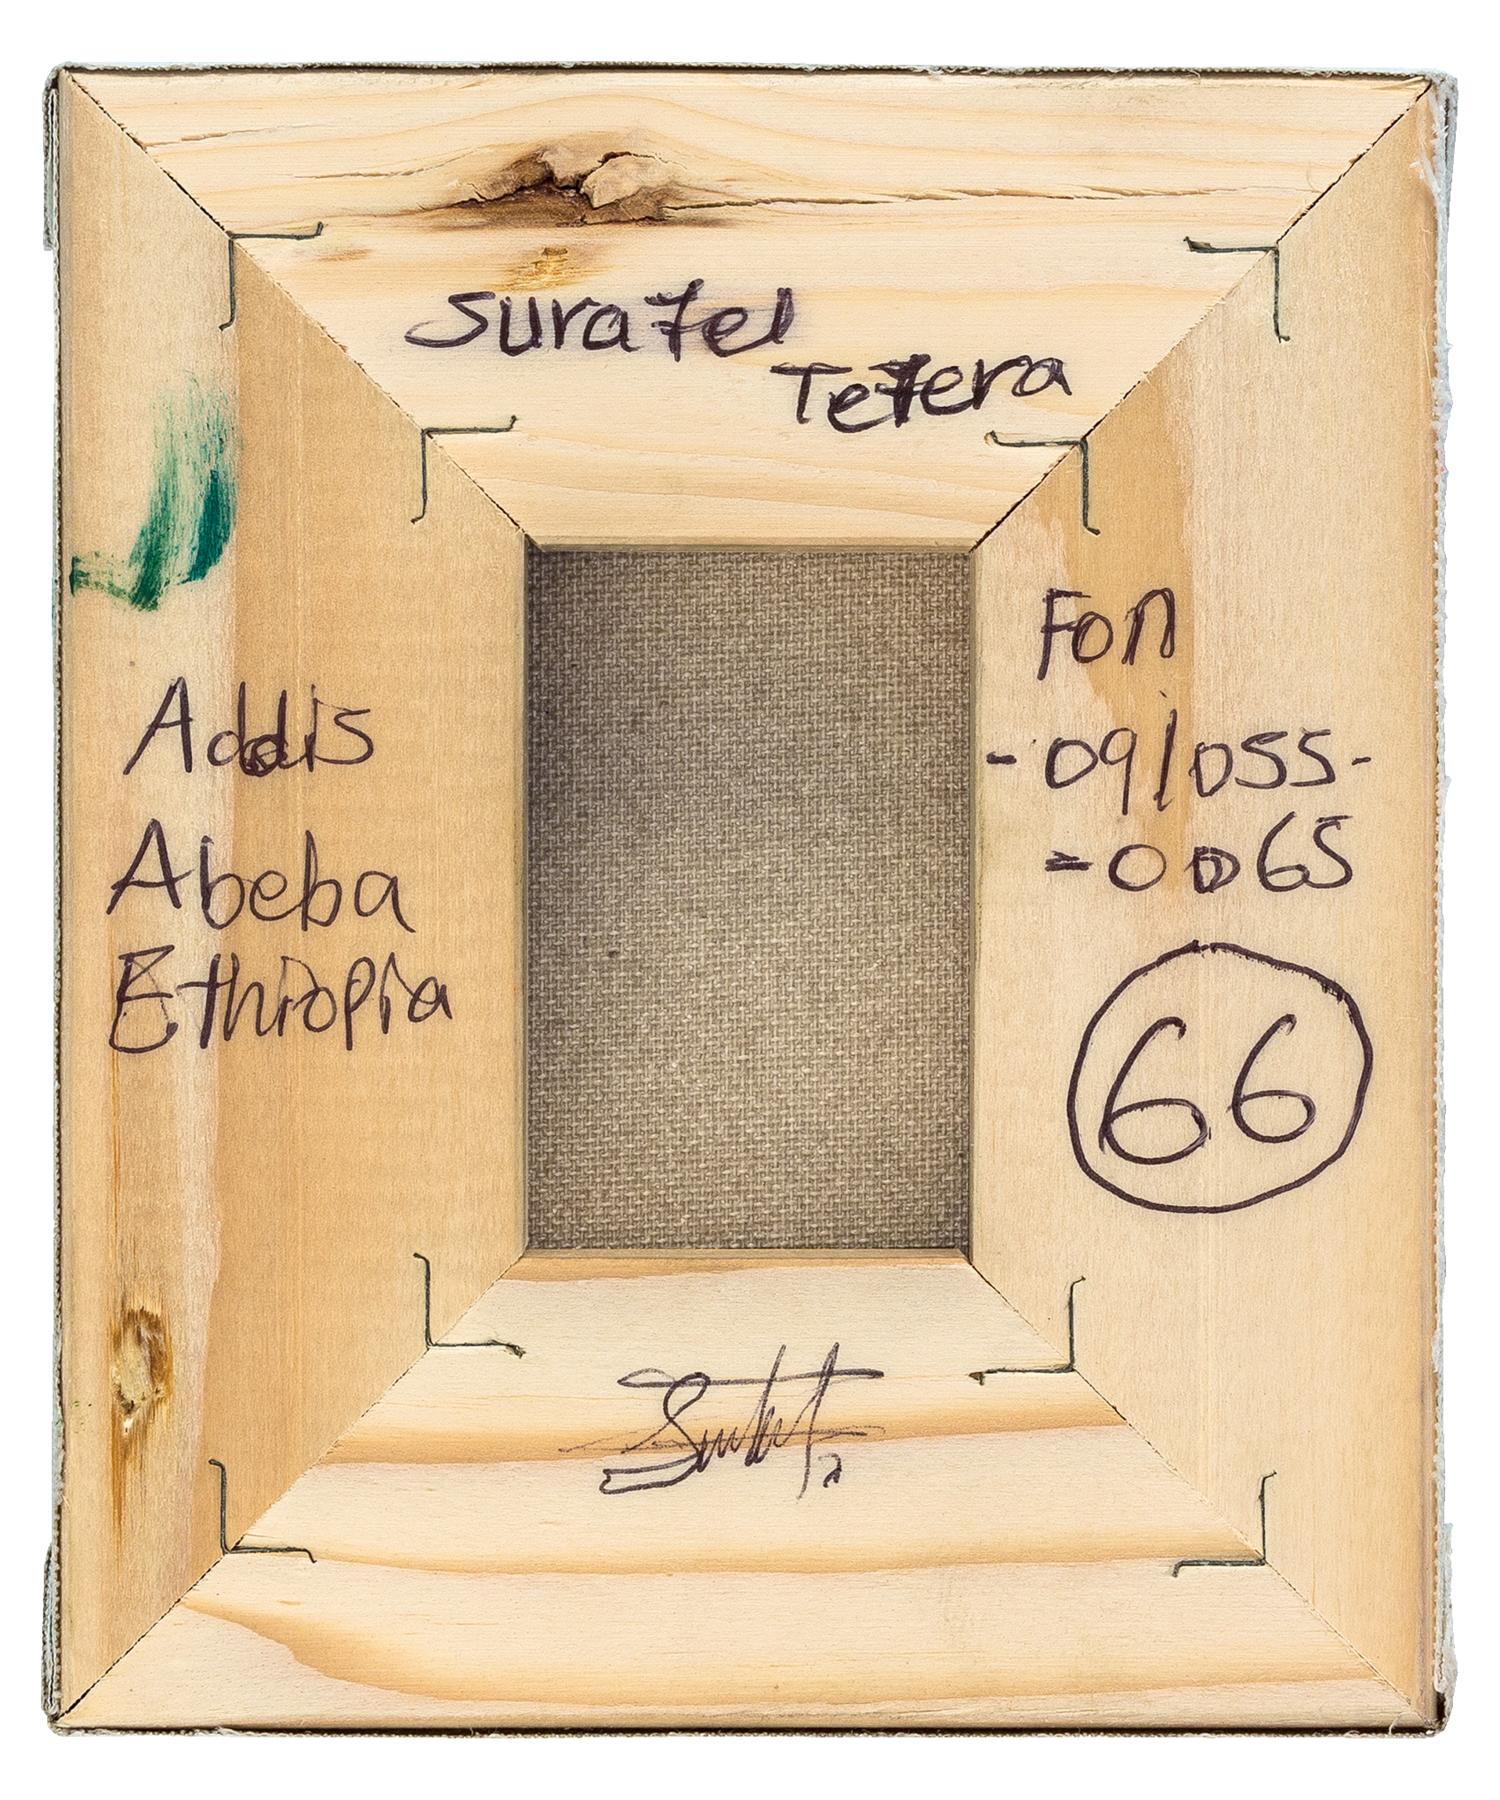 Surafel
Tefera
Addis
Abeba
Ethiopia
Fon
-09/055-
-0065
66